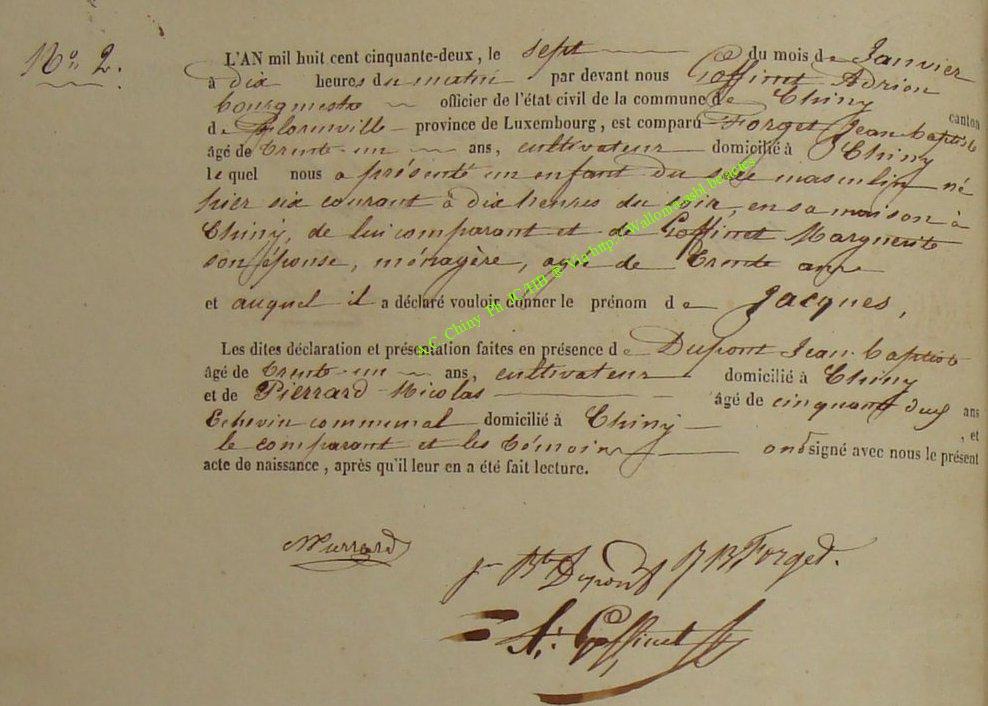 No. 2.
L'AN mil huit cent cinquante-deux, le sept du mois de Janvier
à dix heures du matin par devant nous Goffinet Adrien
bourgmestre officier de l'état civil de la commune de Chiny canton
de Florenville province de Luxembourg, est comparu Forget Jean-baptiste
âgé de trente-un ans, cultivateur domicilié à Chiny
lequel nous a présenté un enfant du sexe masculin né
hier six courant à dix heures du soir, en sa maison à
Chiny, de lui comparant et de Goffinet Marguerite
son épouse, ménagère, agée de trente ans
et auquel il a déclaré vouloir donner le prénom de Jacques,
Les dites déclaration et présentation faites en présence de Dupont Jean-baptiste
âgé de trente-un ans, cultivateur domicilié à Chiny
et de Pierrard Nicolas âgé de cinquante deux ans
Echevin communal domicilié à Chiny , et
le comparant et les témoins ont signé avec nous le présent
acte de naissance, après qu'il leur en a été fait lecture.
NPierrard
Jn Bte Dupont JB Forget.
A. Goffinet
A.C. Chiny Ph JC HB @ Via http://Wallonia.asbl.be/actes